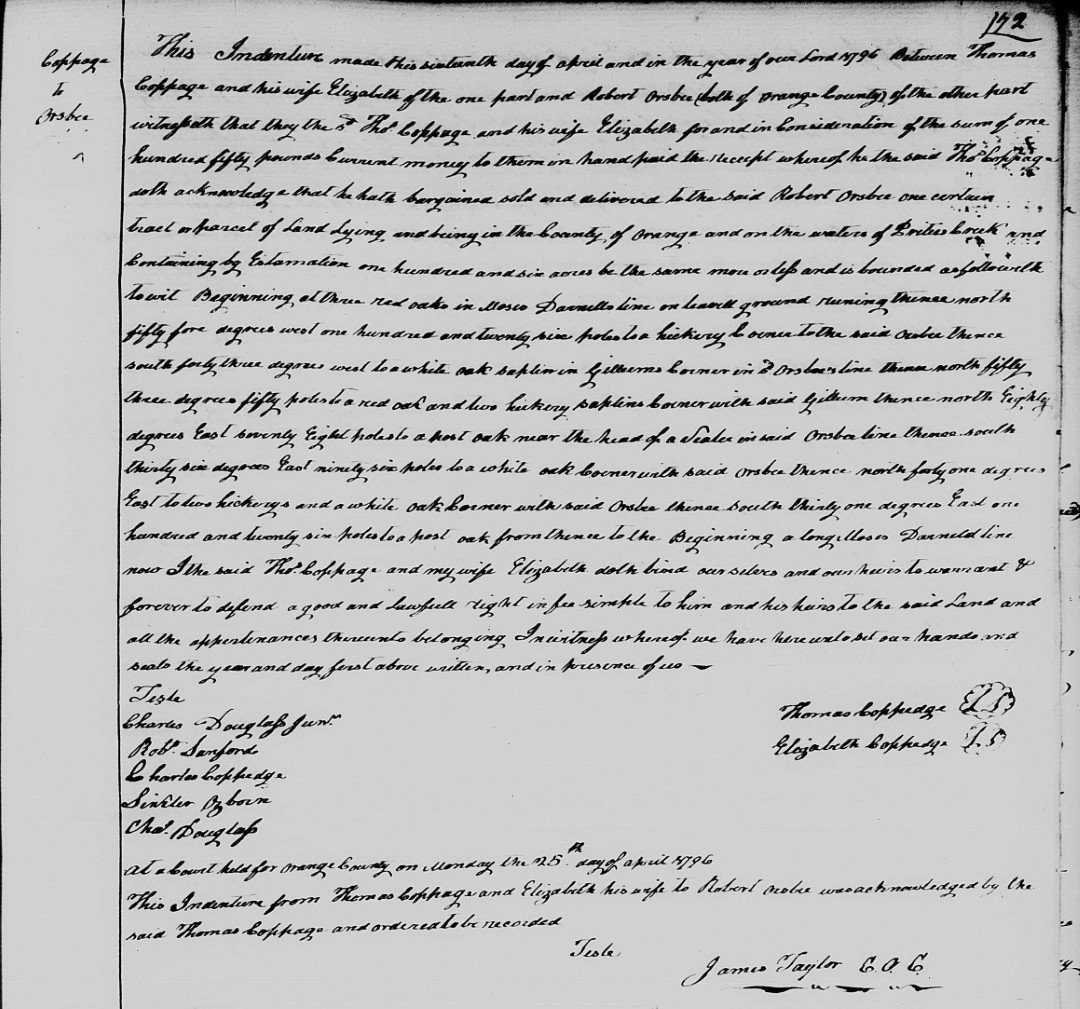 172
Coppage
to
Orsbee
This Indenture made this sixtenth day of april and in the year of our Lord 1796 Between Thomas
Coppage and his wife Elizabeth of the one part and Robert Orsbee (both of Orange County) of the other part
witnesseth that they the sd. Thos. Coppage and his wife Elizabeth for and in Consideration of the sum of one
hundred fifty pounds Current money to them in hand paid the receipt whereof he the said Thos. Coppage
doth acknowledge that he hath bargained sold and delivered to the said Robert Orsbee one certain
tract or parcel of Land Lying and being in the County of Orange and on the waters of Creek and
Containing by Estamation one hundred and six acres be the same more or less and is bounded as followith
to wit Beginning at three red oaks in Moses Darnells line on leavell ground runing thence north
fifty fore degrees west one hundred and twenty six poles to a hickery Corner to the said Orsbee thence
south forty three degrees west to a white oak saplin in Gillums Corner in sd Orsbee's line thence north fifty
three degrees fifty poles to a red oak and two hickery saplins Corner with said Gillum thence north Eighty
degrees East seventy Eight poles to a post oak near the head of a in said Orsbee line thence south
thirty six degrees East ninety six poles to a white oak Corner with said Orsbee thence north forty one degrees
East to two hickerys and a white oak Corner with said Orsbee thence south thirty one degrees East one
hundred and twenty six poles to a post oak from thence to the Beginning along Moses Darneld line
now I the said Thos. Coppage and my wife Elizabeth doth bind ourselves and our heirs to warrant &
forever to defend a good and Lawfull right in fee simple to him and his hairs to the said Land and
all the appertenances thereunto belonging In witness whereof we have hereunto set our hands and
seals the year and day first above written, and in presence of us —
Teste
Charles Douglass Junr.
Robt. Sanford
Charles Coppedge
Sinkler Ozboin
Chas. Douglass
Thomas Coppedge LS
Elizabeth Coppedge LS
At a Court held for Orange County on Monday the 25th. day of april 1796
This Indenture from Thomas Coppage and Elizabeth his wife to Robert Orsbee was acknowledged by the
said Thomas Coppage and ordered to be recorded
Teste
James Taylor C.O.C.